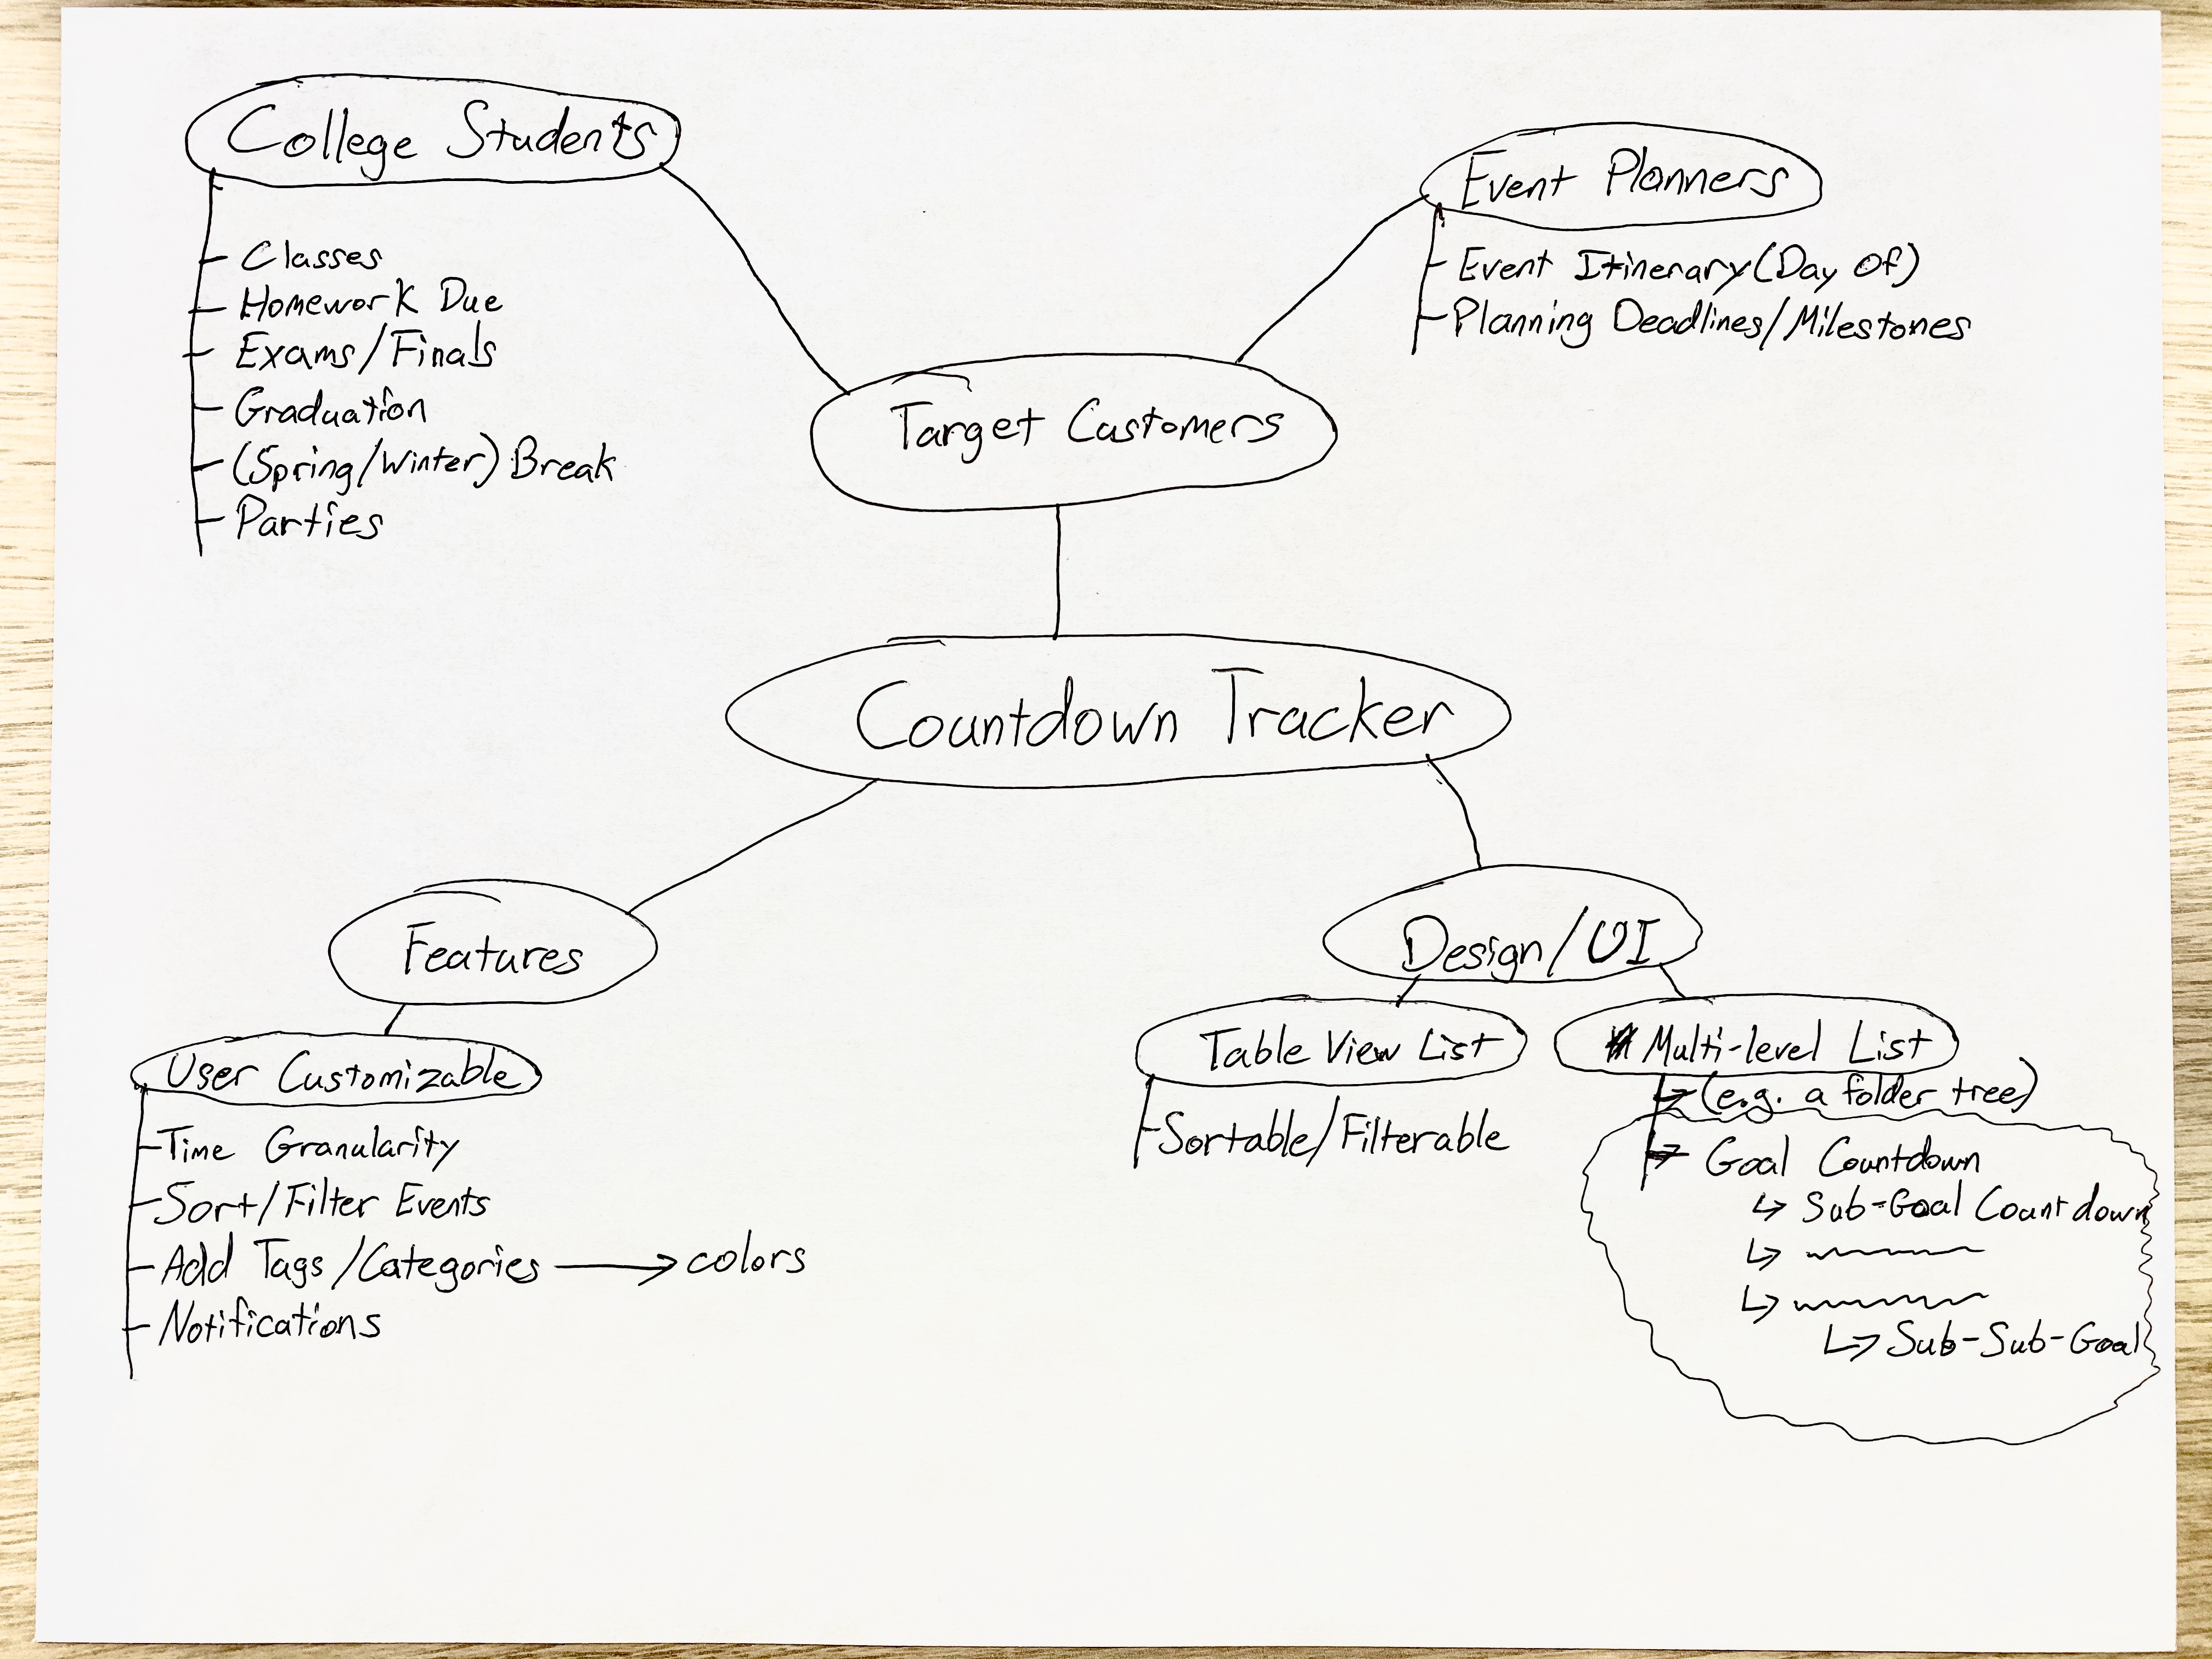 College Students
Classes
Homework Due
Exams/Finals
Graduation
(Spring/Winter) Break
Parties
Event Planners
Event Itinerary (Day Of)
Planning Deadlines/Milestones
Target Customers
Countdown Tracker
Features
User Customizable
Time Granularity
Sort/Filter Events
Add Tags/Categories → colors
Notifications
Design/UI
Table View List
Sortable/Filterable
Multi-level List
(e.g. a folder tree)
Goal Countdown
↳ Sub-Goal Countdown
↳
↳
↳ Sub-Sub-Goal